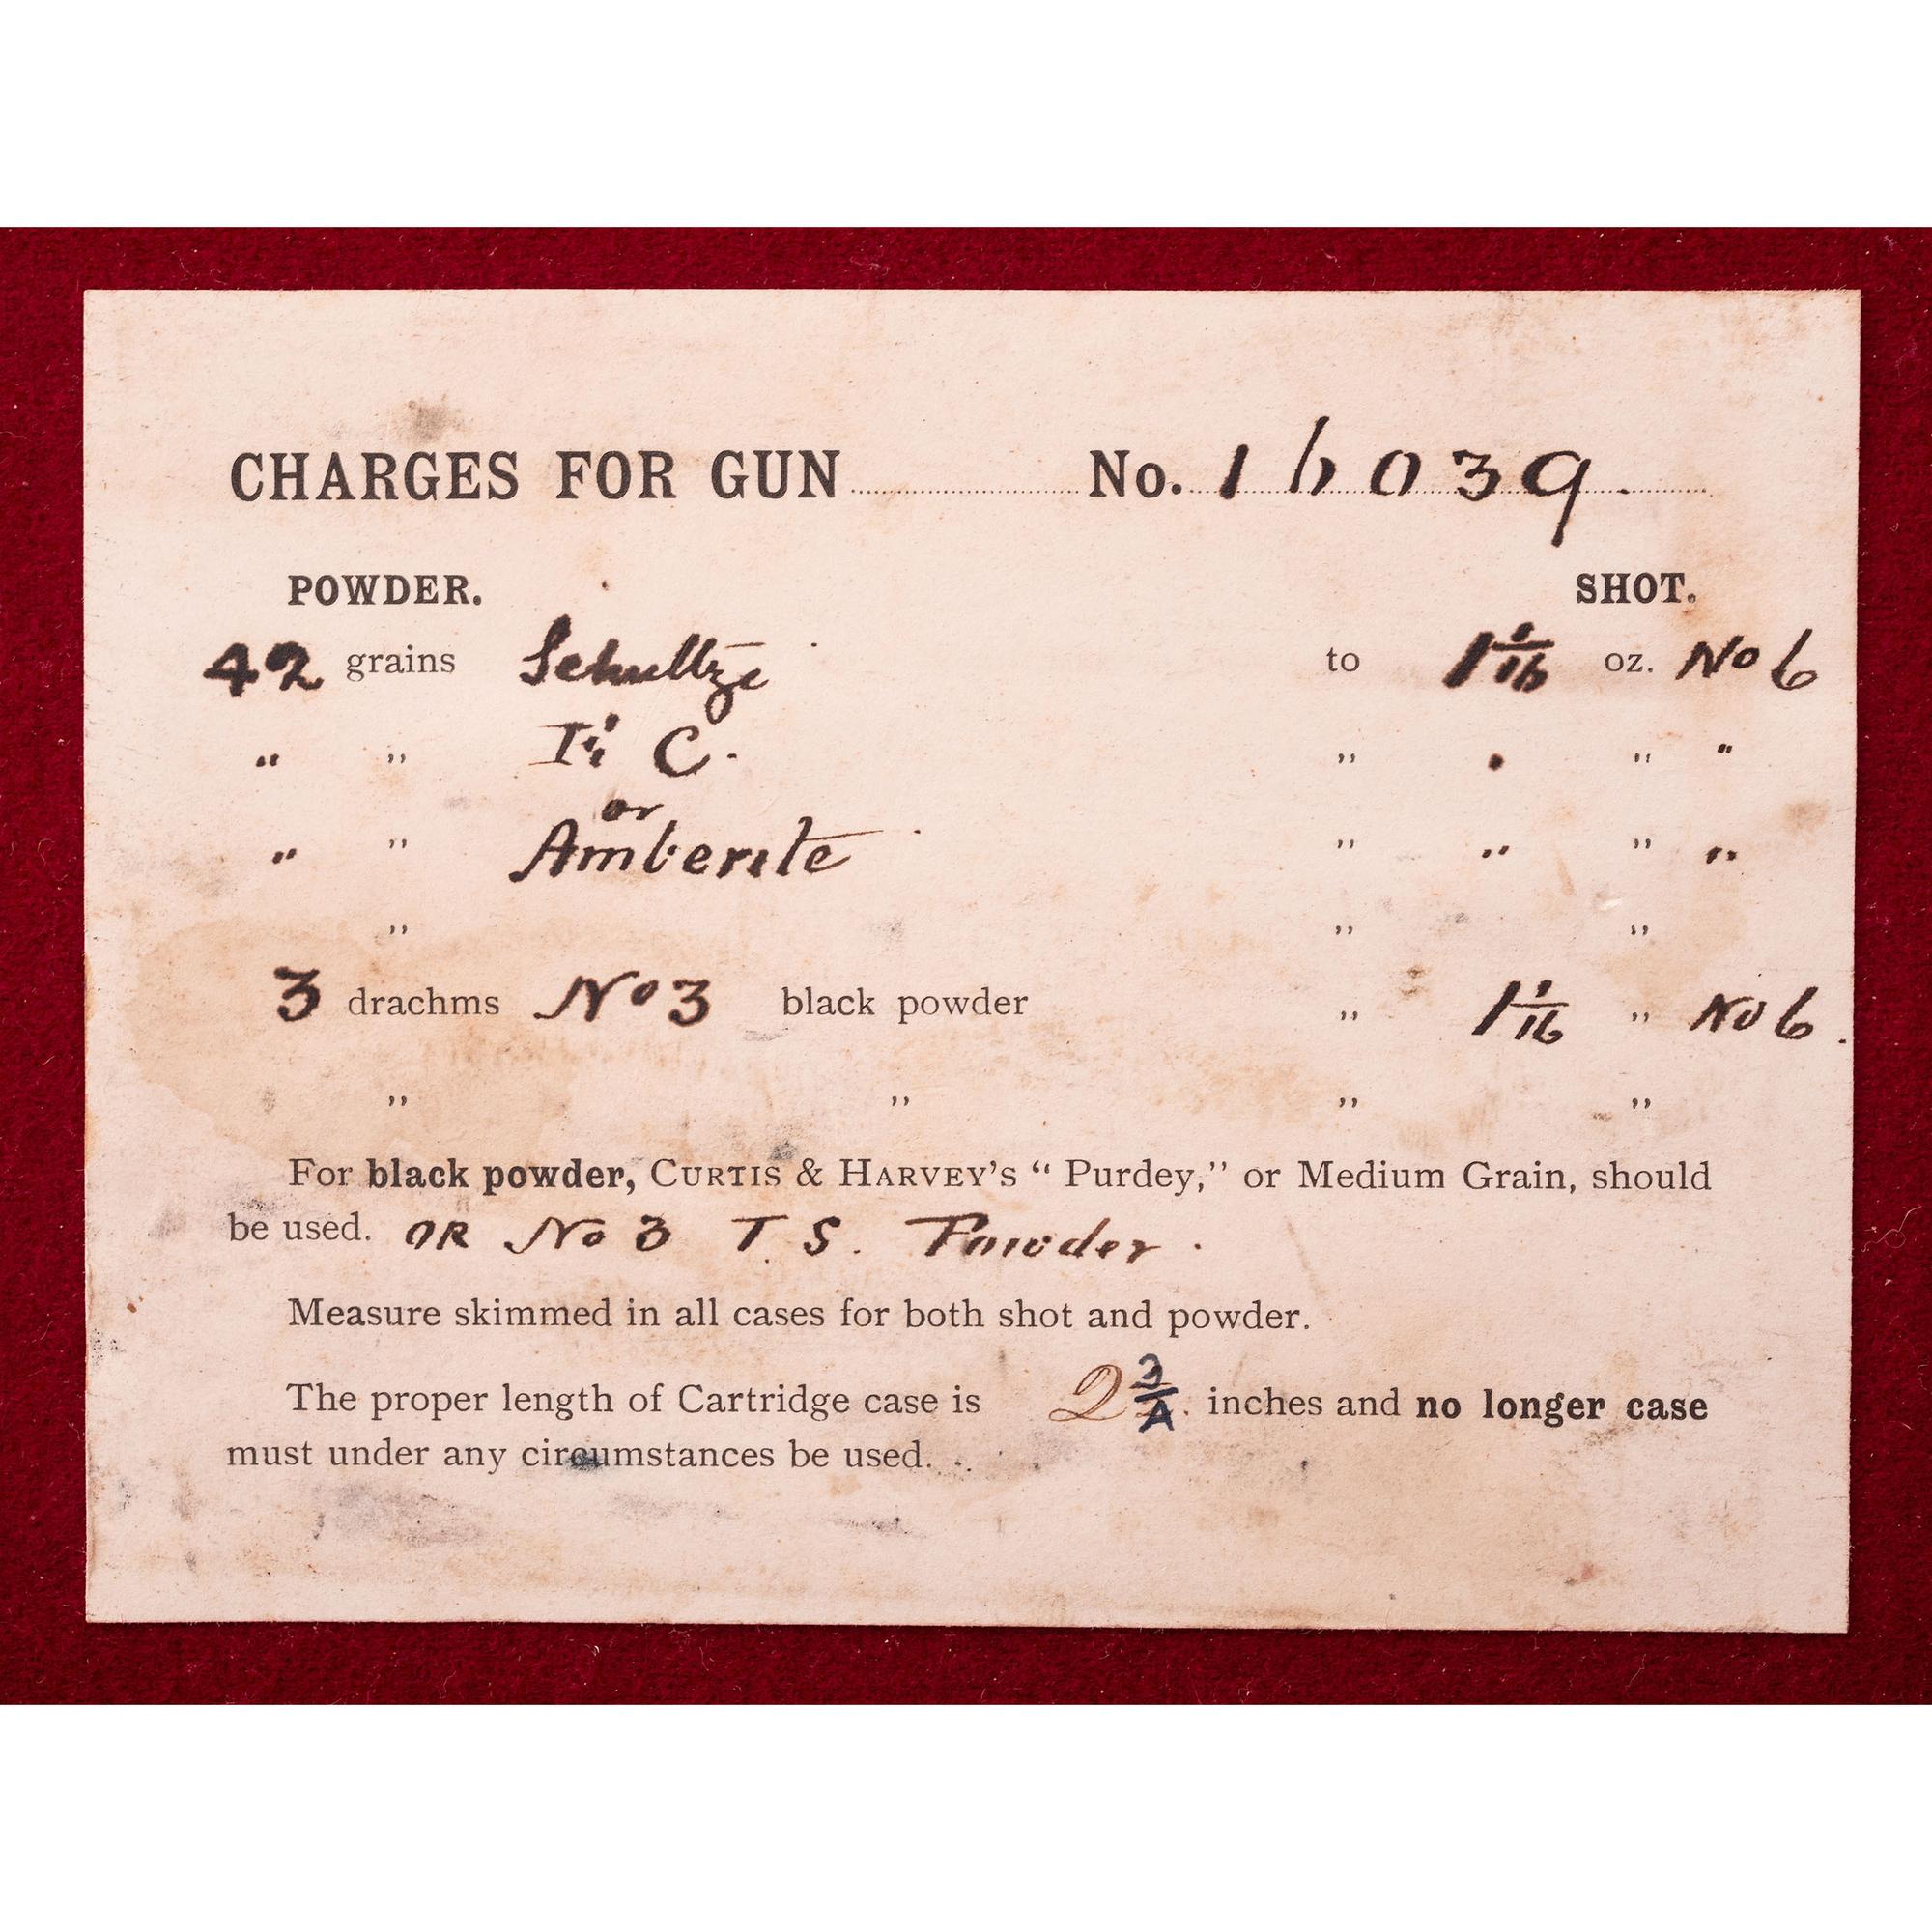 CHARGES FOR GUN No. 16039.
POWDER. SHOT.
42 grains Schultze to 1 1/16 oz. No 6
" " E. C. " " " "
or
" " Amberite " " " "
" " "
3 drachms No 3 black powder " 1 1/16 " No 6.
" " " "
For black powder, CURTIS & HARVEY'S “ Purdey,” or Medium Grain, should
be used. OR No 3 T. S. Powder.
Measure skimmed in all cases for both shot and powder.
The proper length of Cartridge case is 2 3/4. inches and no longer case
must under any circumstances be used.